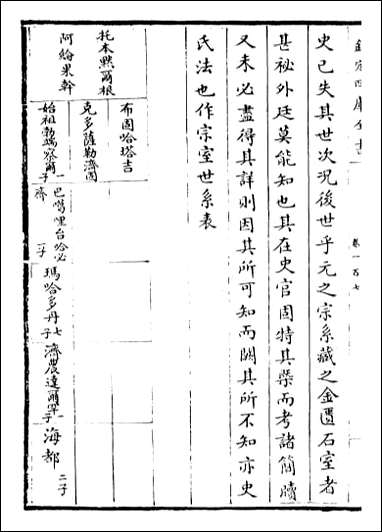 欽定四庫全書
卷一百七
史已失其世次況後世乎元之宗系藏之金匱石室者
甚祕外廷莫能知也其在史官固特其槩而考諸簡牘
又未必盡得其詳則因其所可知而闕其所不知亦史
氏法也作宗室世系表
布固哈塔吉
托本黙爾根
阿綸果幹
克多薩勒濟固
始祖勃端察爾一子
巴噶哩台哈必
齊 一子
瑪哈多丹七子
濟農達爾罕一子
海都 二子